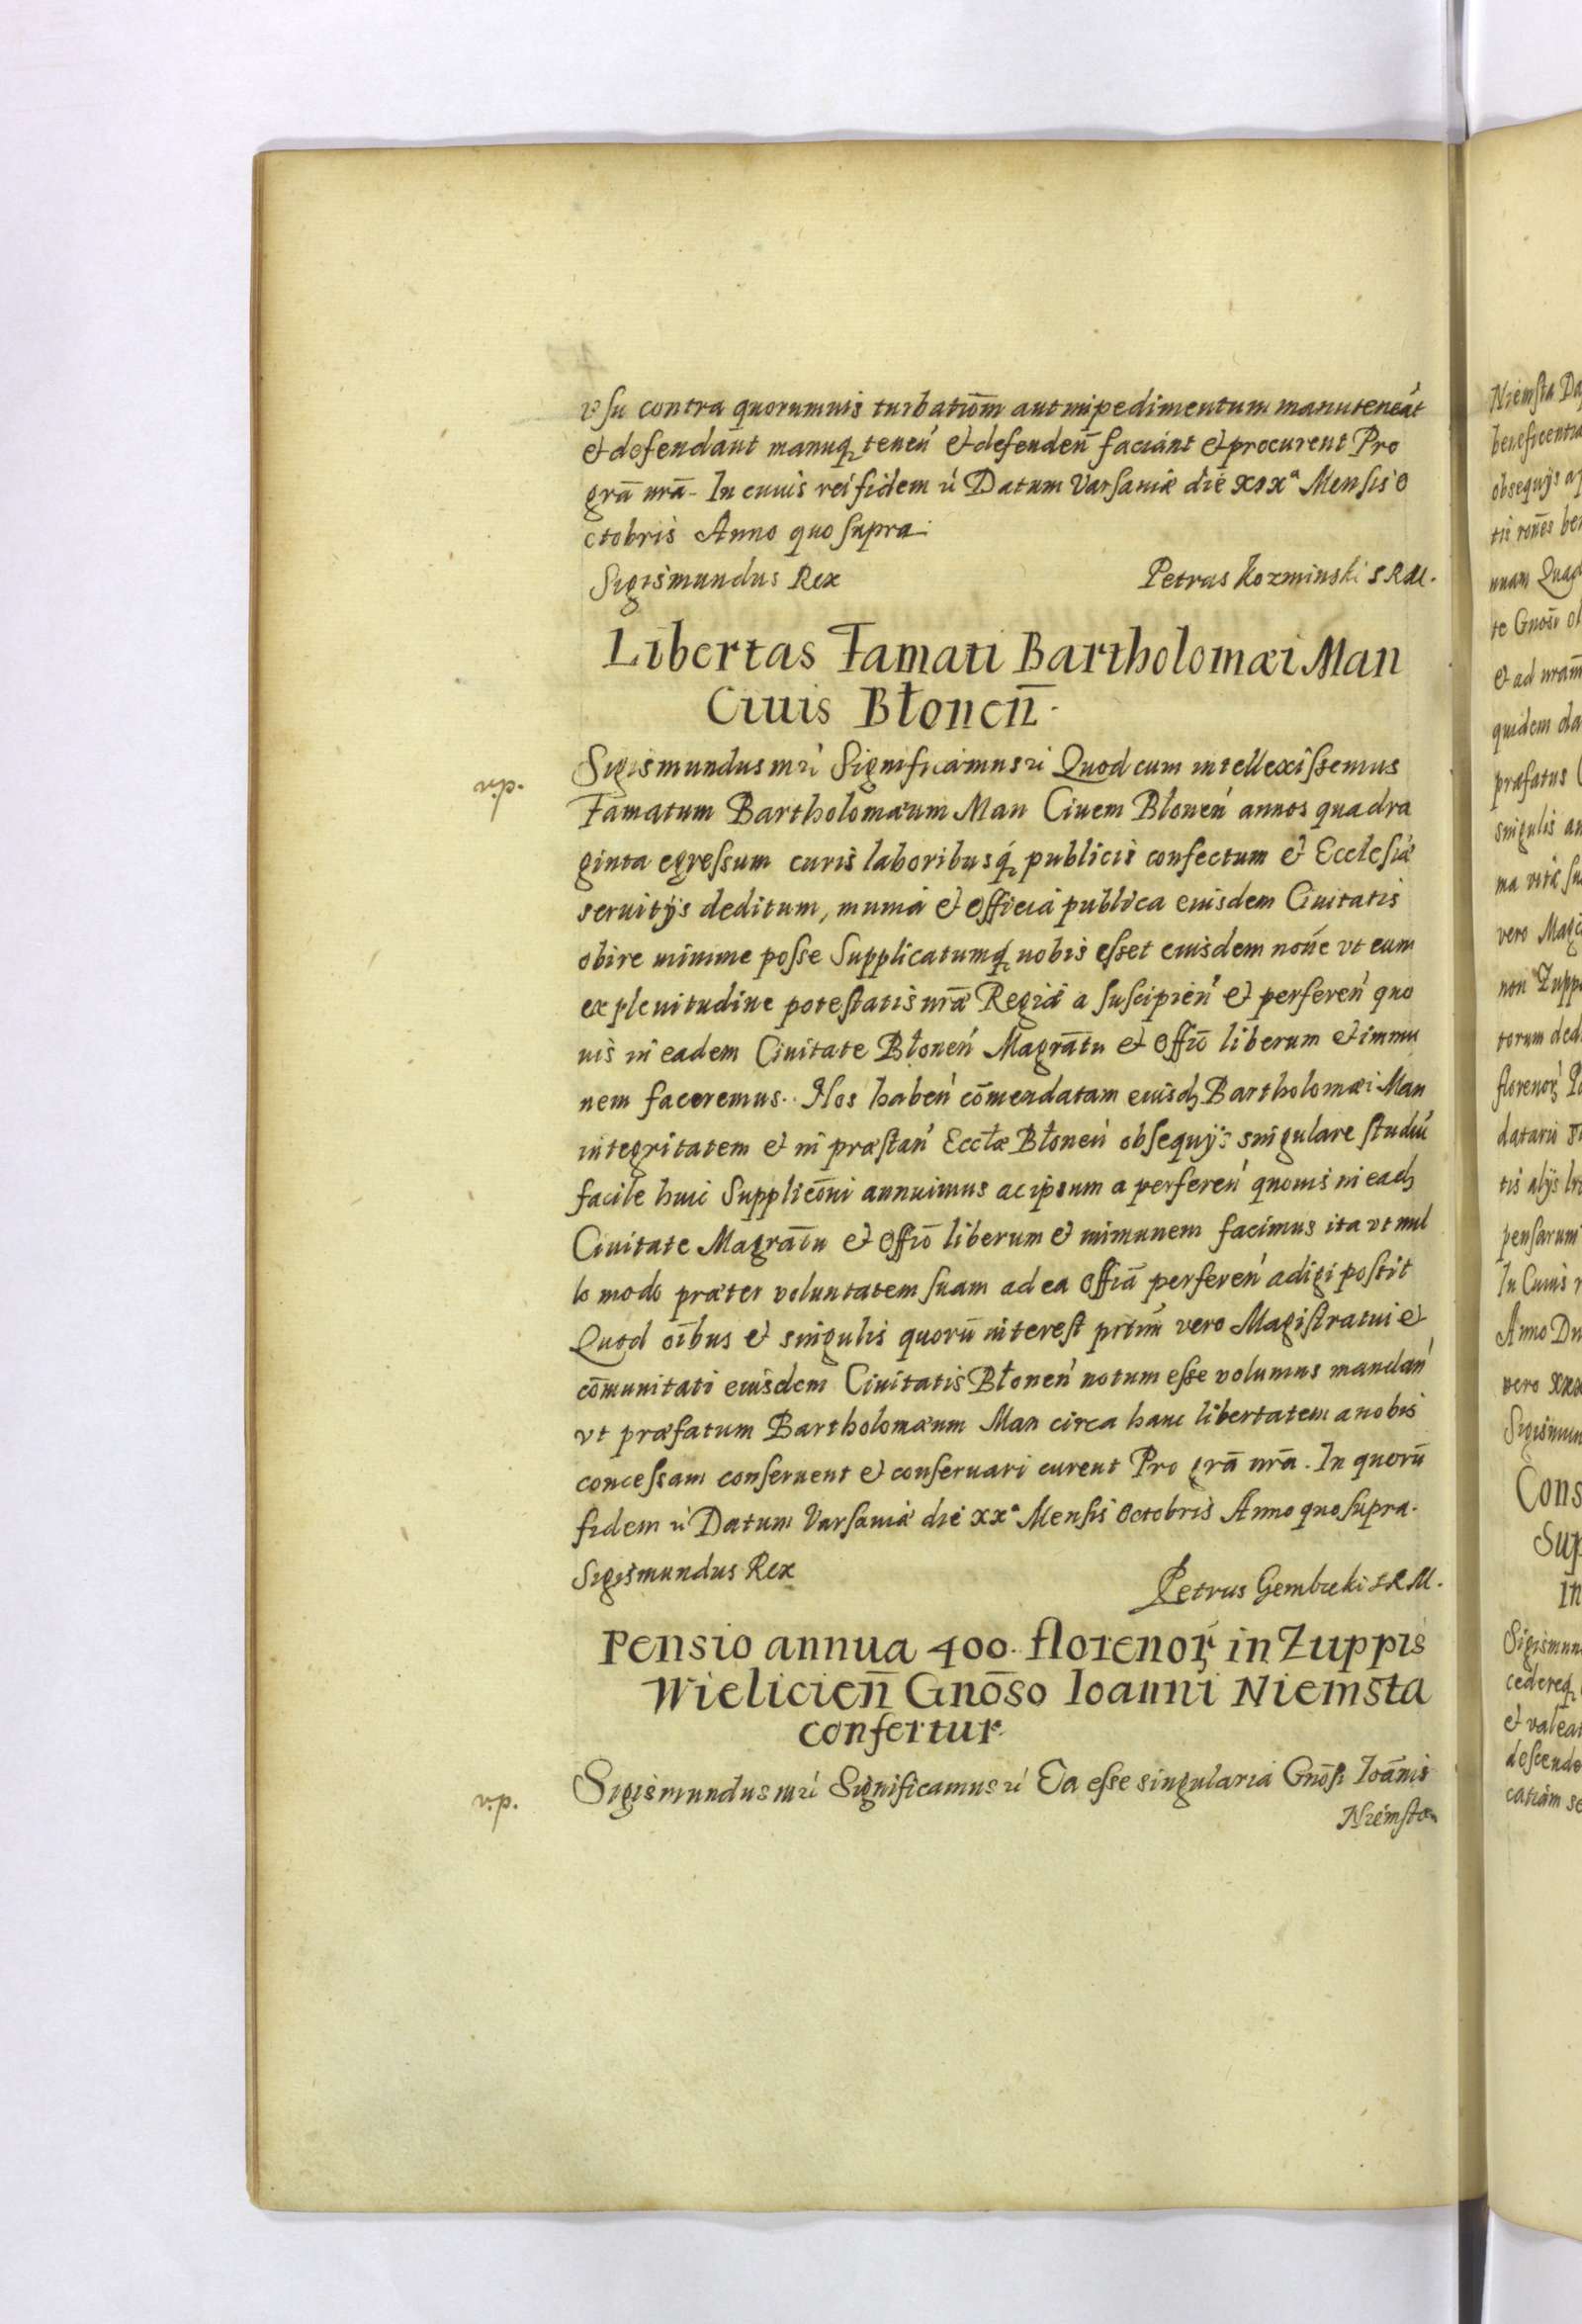 vsu contra quorumuis turbatiōm aut impedimentum manuteneāt
et defendānt manuq₂ tenen̄ et defenden̄ faciant et procurent Pro
grā nrā. In cuius rei fidem ꝛc̄ Datum Varsaviæ die xixᵃ Mensis O
ctobris Anno quo supra.
Sigismundus Rex Petrus Kozminski S R M.
Libertas Famati Bartholomæi Man
Ciuis Błonen̄.
div.
Sigismundus mꝛc̄ Significamus ꝛc̄ Quod cum intellexissemus
Famatum Bartholomæum Man Ciuem Błonen̄ annos quadra
ginta egressum curis laboribusq₂ publicis confectum et Ecclesiæ
seruitijs deditum, munia et officia publica eiusdem Ciuitatis
obire minime posse Supplicatumq₂ nobis esset eiusdem noīe vt eum
ex plenitudine potestatis nrǣ Regiæ a suscipien̄ et perferen̄ quo
uis in eadem Ciuitate Błonen̄ Magrātu et offīo liberum et immu
nem faceremus. Nos haben̄ cōmendatam eiusdȝ Bartholomæi Man
integritatem et in præstan̄ Eccłæ Błonen̄ obsequijs singulare studiū
facile huic Supplicōni annuimus ac ipsum a perferen̄ quouis in eadȝ
Ciuitate Magrātu et offīo liberum et immunem facimus ita vt nul
lo modo præter voluntatem suam ad ea offīa perferen̄ adigi possit
Quod oībus et singulis quorū interest prtīm vero Magistratui et
cōmunitati eiusdem Ciuitatis Błonen̄ notum esse volumus mandan̄
vt præfatum Bartholomæum Man circa hanc libertatem a nobis
concessam conseruent et conseruari curent Pro grā nrā. In quorū
fidem ꝛc̄ Datum Varsaviæ die xxᵃ Mensis Octobris Anno quo supra.
Sigismundus Rex Petrus Gembicki S R M.
Pensio annua 400. florenoꝝ in Zuppis
Wielicien̄ Gnōso Ioanni Niemsta
confertur.
div.
Sigismundus mꝛc̄ Significamus ꝛc̄ Ea esse singularia Gnōsi Ioānnis
Niemsta